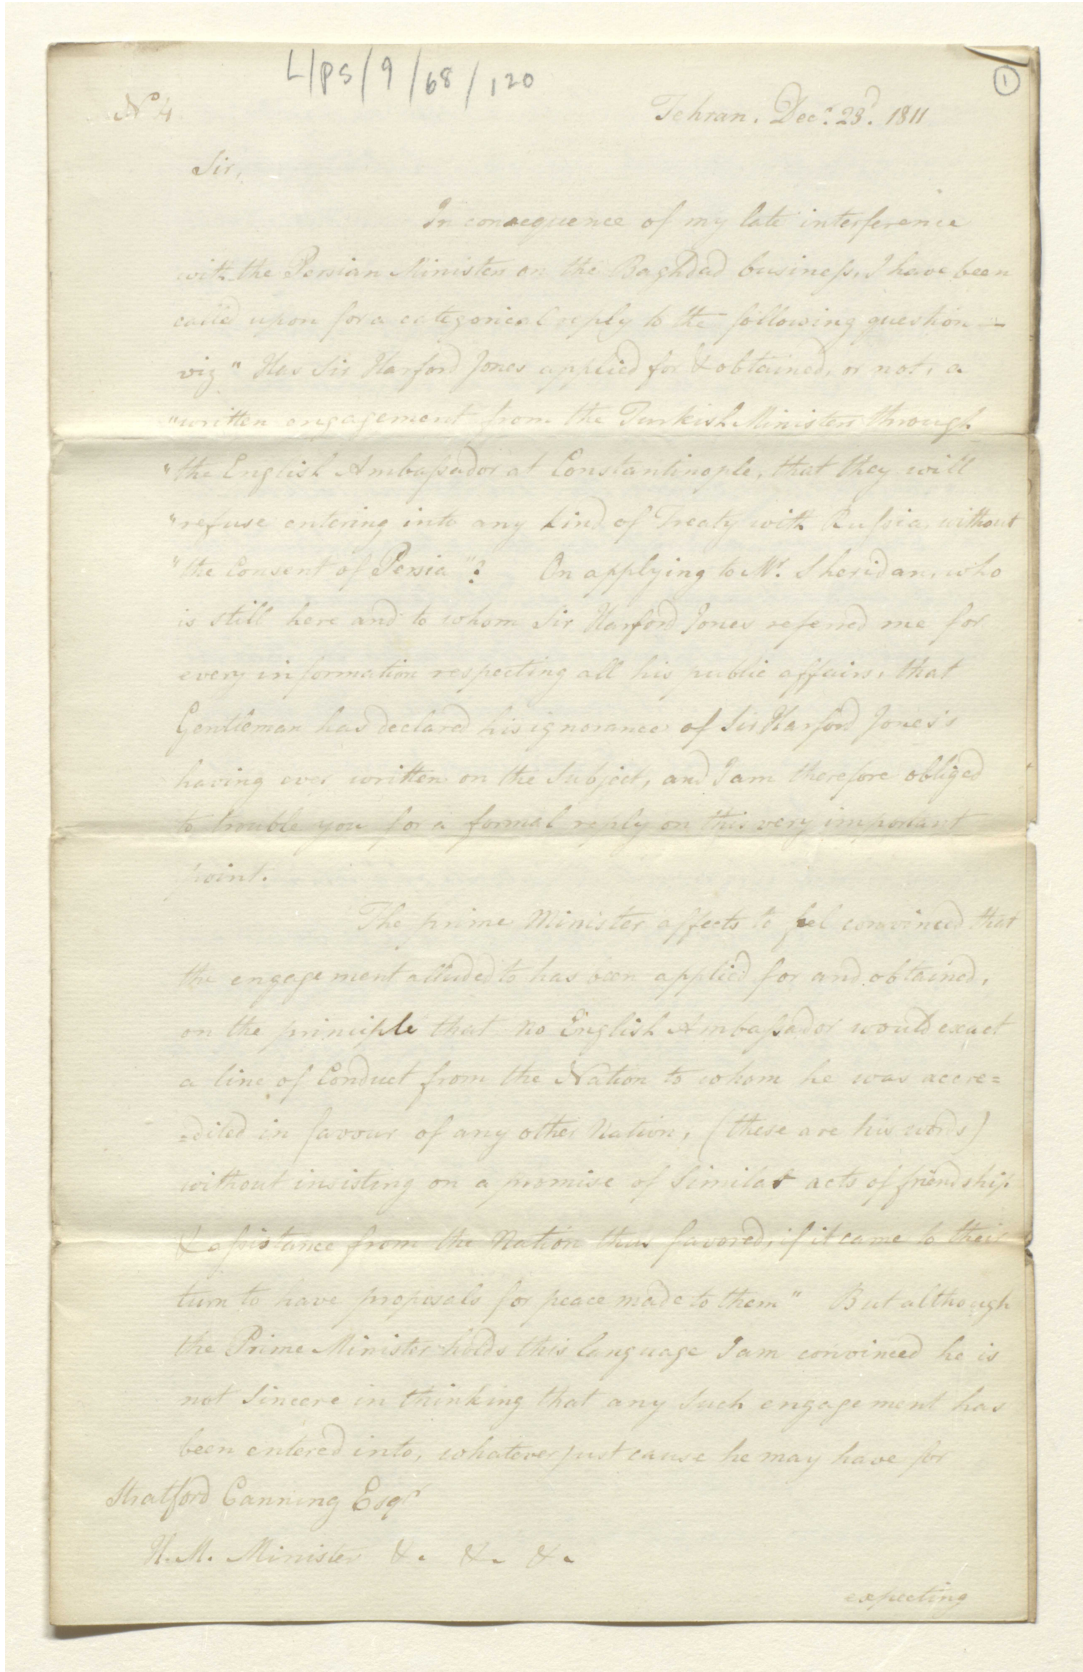 L/PS/9/68/120
1
No. 4.
Tehran, Decr. 23d. 1811
Sir,
In consequence of my late interference
with the Persian Ministers on the Baghdad business, I have been
called upon for a categorical reply to the following question —
viz "Has Sir Harford Jones applied for & obtained, or not, a
"written engagement from the Turkish Ministers through
"the English Ambassador at Constantinople, that they will
"refuse entering into any kind of Treaty with Russia, without
"the Consent of Persia"? On applying to Mr. Sheridan, who
is still here and to whom Sir Harford Jones referred me for
every information respecting all his public affairs, that
Gentleman has declared his ignorance of Sir Harford Jones's
having ever written on the Subject, and I am therefore obliged
to trouble you for a formal reply on this very important
point.
The prime Minister affects to feel convinced that
the engagement alluded to has been applied for and obtained,
on the principle that no English Ambassador would exact
a line of Conduct from the Nation to whom he was accre=
=dited in favour of any other Nation, (these are his words)
without insisting on a promise of Similar acts of friendship
& assistance from the Nation thus favored, if it came to their
turn to have proposals for peace made to them" But although
the Prime Minister holds this language I am convinced he is
not Sincere in thinking that any Such engagement has
been entered into, whatever just cause he may have for
Stratford Canning Esqr.
H.M. Minister &. &. &.
expecting